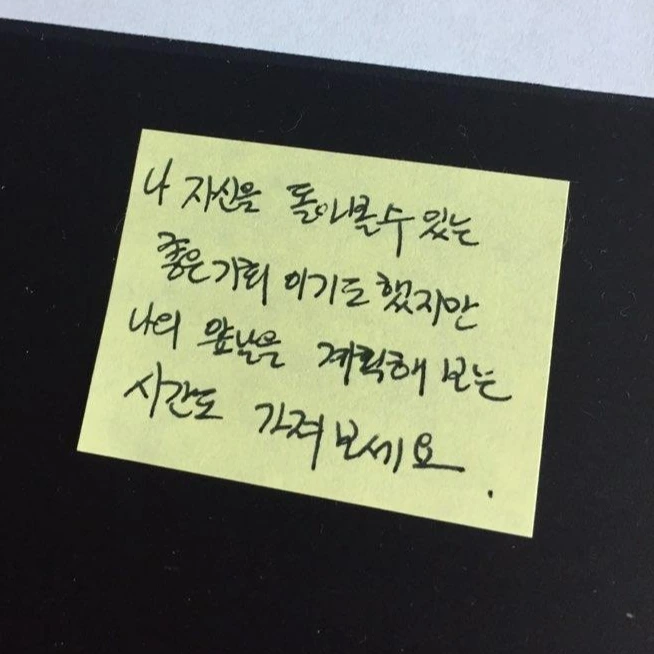 나 자신을 돌아볼수 있는
좋은기회 이기도 했지만
나의 앞날을 계획해 보는
시간도 가져 보세요.